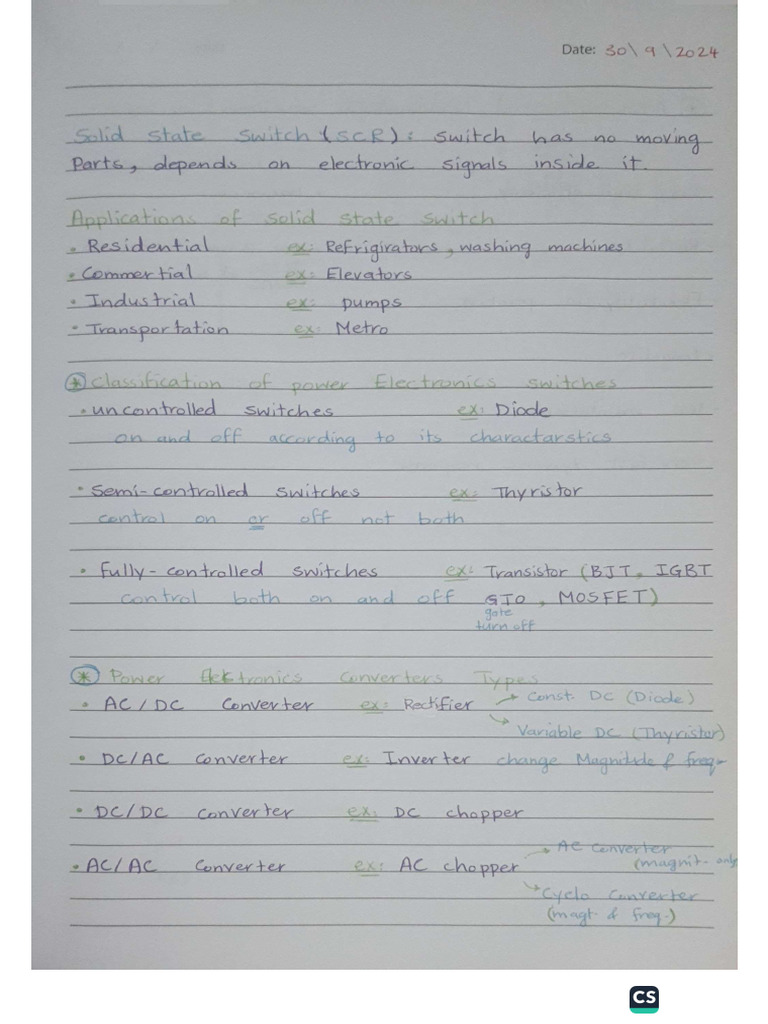 Date: 30\9\2024
Solid state switch (SCR): switch has no moving
Parts, depends on electronic signals inside it.
Applications of solid state switch
• Residential ex: Refrigirators, washing machines
• Commertial ex: Elevators
• Industrial ex: pumps
• Transportation ex: Metro
* Classification of power Electronics switches
• uncontrolled switches ex: Diode
on and off according to its charactarstics
• Semi-controlled switches ex: Thyristor
control on or off not both
• fully-controlled switches ex: Transistor (BJT, IGBT
control both on and off GTO, MOSFET)
gate
turn off
* Power Elektronics Converters Types
• AC/DC Converter ex: Rectifier → Const. DC (Diode)
→ Variable DC (Thyristor)
• DC/AC Converter ex: Inverter change Magnitude & freq-
• DC/DC converter ex: DC chopper
• AC/AC Converter ex: AC chopper → AC Converter
(magnit- only
→ Cyclo Converter
(magt & freq.)
CS